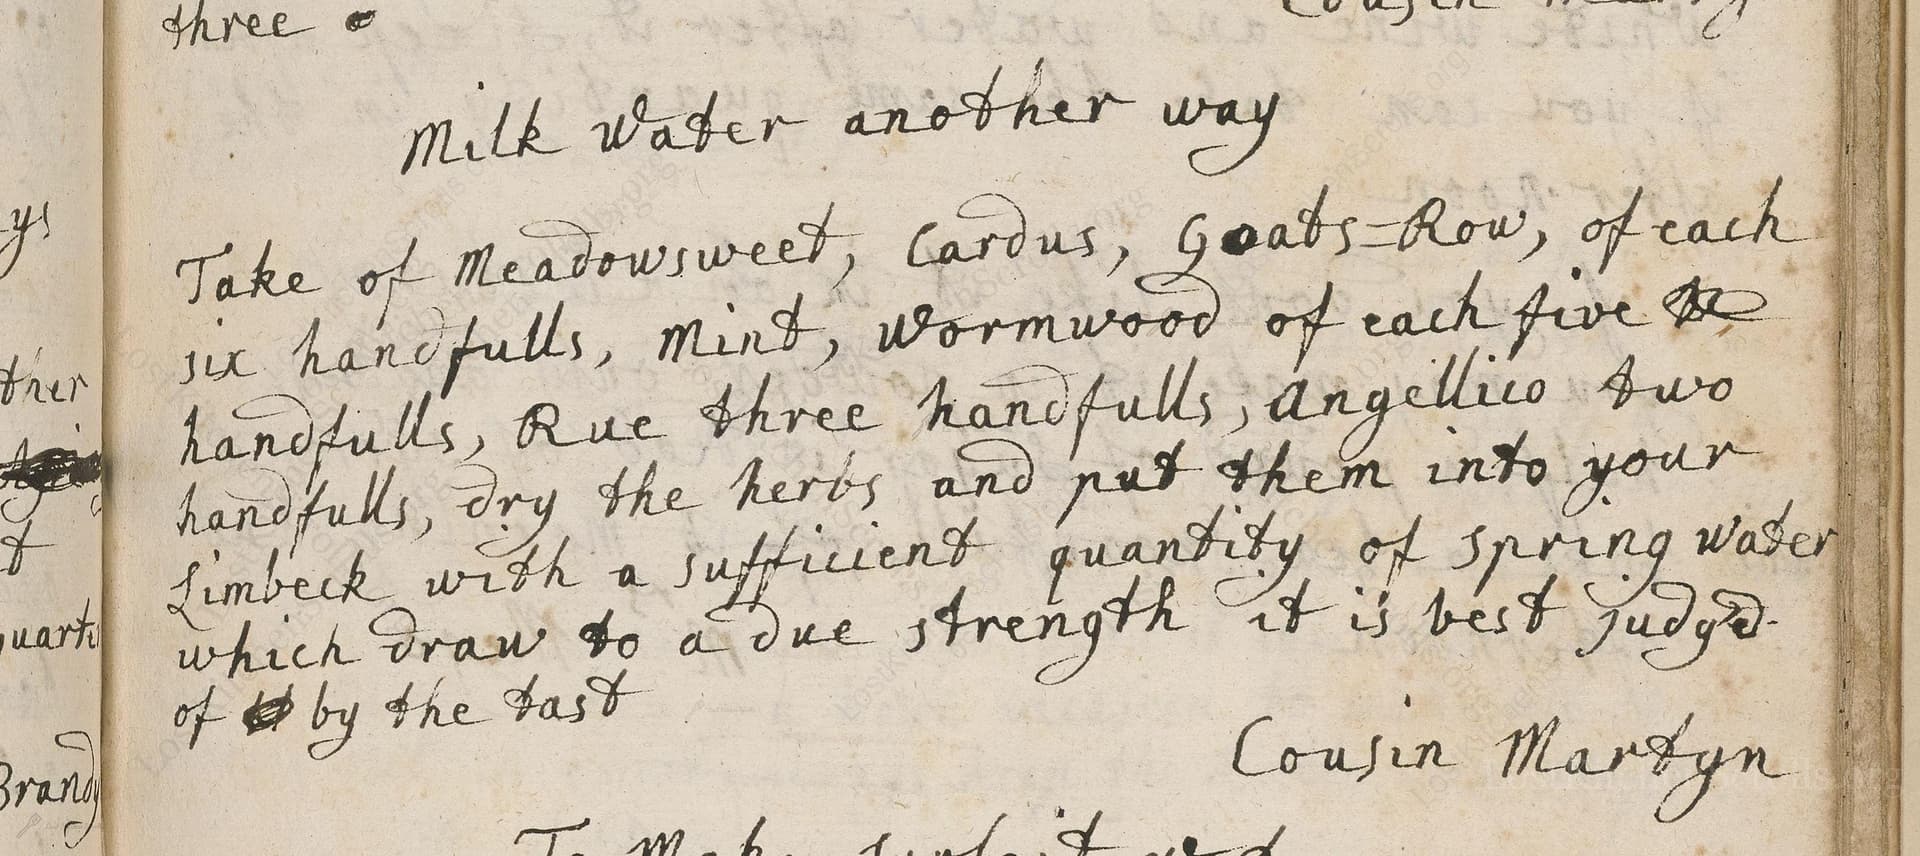 three
Cousin
Milk Water another way
Take of Meadowsweet, Cardus, Goats=Row, of each
six handfulls, Mint, Wormwood of each five
handfulls, Rue three handfulls, Angellico two
handfulls, dry the herbs and put them into your
Limbeck with a sufficient quantity of Spring Water
which draw to a due strength it is best judg'd
of by the tast
Cousin Martyn
To Make surfeit
ys
ther
t
quarts
Brandy